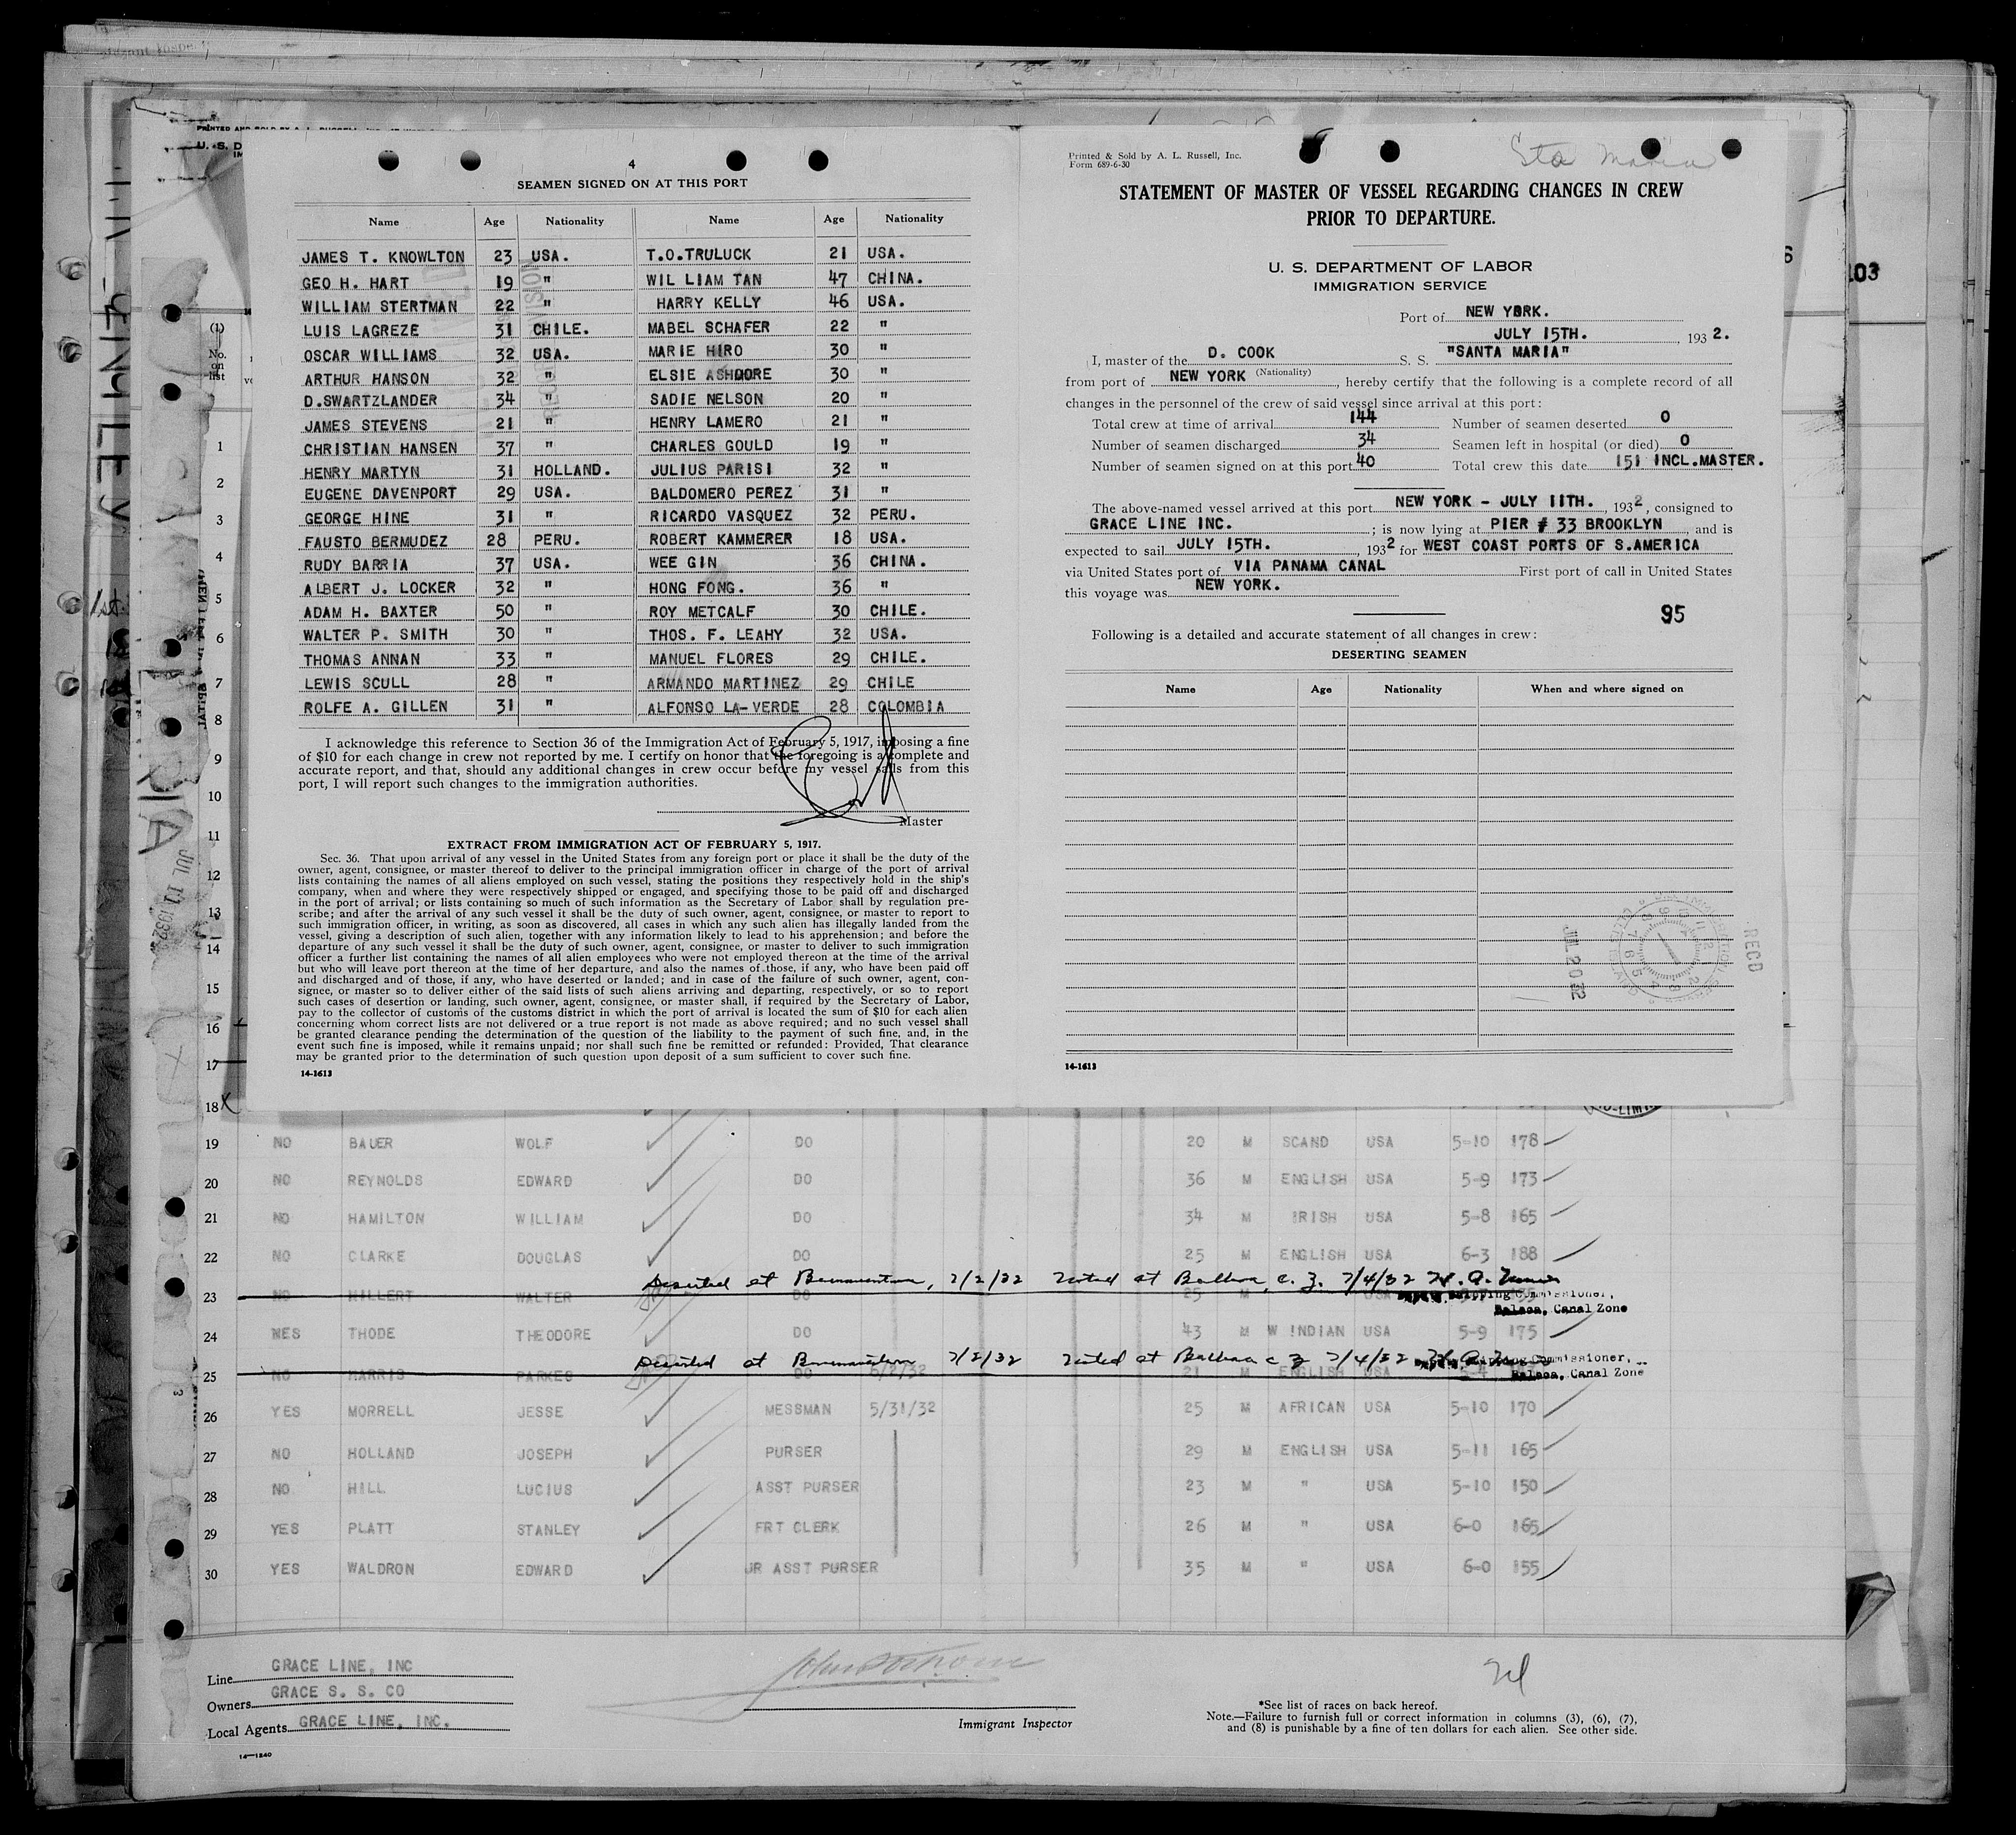 4
SEAMEN SIGNED ON AT THIS PORT
Name Age Nationality Name Age Nationality
JAMES T. KNOWLTON 23 USA. T.O.TRULUCK 21 USA.
GEO H. HART 19 " WIL LIAM TAN 47 CHINA.
WILLIAM STERTMAN 22 " HARRY KELLY 46 USA.
LUIS LAGREZE 31 CHILE. MABEL SCHAFER 22 "
OSCAR WILLIAMS 32 USA. MARIE HIRO 30 "
ARTHUR HANSON 32 " ELSIE ASHDORE 30 "
D.SWARTZLANDER 34 " SADIE NELSON 20 "
JAMES STEVENS 21 " HENRY LAMERO 21 "
CHRISTIAN HANSEN 37 " CHARLES GOULD 19 "
HENRY MARTYN 31 HOLLAND. JULIUS PARISI 32 "
EUGENE DAVENPORT 29 USA. BALDOMERO PEREZ 31 "
GEORGE HINE 31 " RICARDO VASQUEZ 32 PERU.
FAUSTO BERMUDEZ 28 PERU. ROBERT KAMMERER 18 USA.
RUDY BARRIA 37 USA. WEE GIN 36 CHINA.
ALBERT J. LOCKER 32 " HONG FONG. 36 "
ADAM H. BAXTER 50 " ROY METCALF 30 CHILE.
WALTER P. SMITH 30 " THOS. F. LEAHY 32 USA.
THOMAS ANNAN 33 " MANUEL FLORES 29 CHILE.
LEWIS SCULL 28 " ARMANDO MARTINEZ 29 CHILE
ROLFE A. GILLEN 31 " ALFONSO LA-VERDE 28 COLOMBIA
I acknowledge this reference to Section 36 of the Immigration Act of February 5, 1917, imposing a fine
of $10 for each change in crew not reported by me. I certify on honor that the foregoing is a complete and
accurate report, and that, should any additional changes in crew occur before my vessel sails from this
port, I will report such changes to the immigration authorities.
Master
EXTRACT FROM IMMIGRATION ACT OF FEBRUARY 5, 1917.
Sec. 36. That upon arrival of any vessel in the United States from any foreign port or place it shall be the duty of the
owner, agent, consignee, or master thereof to deliver to the principal immigration officer in charge of the port of arrival
lists containing the names of all aliens employed on such vessel, stating the positions they respectively hold in the ship's
company, when and where they were respectively shipped or engaged, and specifying those to be paid off and discharged
in the port of arrival; or lists containing so much of such information as the Secretary of Labor shall by regulation pre-
scribe; and after the arrival of any such vessel it shall be the duty of such owner, agent, consignee, or master to report to
such immigration officer, in writing, as soon as discovered, all cases in which any such alien has illegally landed from the
vessel, giving a description of such alien, together with any information likely to lead to his apprehension; and before the
departure of any such vessel it shall be the duty of such owner, agent, consignee, or master to deliver to such immigration
officer a further list containing the names of all alien employees who were not employed thereon at the time of the arrival
but who will leave port thereon at the time of her departure, and also the names of those, if any, who have been paid off
and discharged and of those, if any, who have deserted or landed; and in case of the failure of such owner, agent, con-
signee, or master so to deliver either of the said lists of such aliens arriving and departing, respectively, or so to report
such cases of desertion or landing, such owner, agent, consignee, or master shall, if required by the Secretary of Labor,
pay to the collector of customs of the customs district in which the port of arrival is located the sum of $10 for each alien
concerning whom correct lists are not delivered or a true report is not made as above required; and no such vessel shall
be granted clearance pending the determination of the question of the liability to the payment of such fine, and, in the
event such fine is imposed, while it remains unpaid; nor shall such fine be remitted or refunded: Provided, That clearance
may be granted prior to the determination of such question upon deposit of a sum sufficient to cover such fine.
14-1613
Printed & Sold by A. L. Russell, Inc.
Form 689-6-30
Sta Maria
STATEMENT OF MASTER OF VESSEL REGARDING CHANGES IN CREW
PRIOR TO DEPARTURE.
U. S. DEPARTMENT OF LABOR
IMMIGRATION SERVICE
Port of NEW YORK.
JULY 15TH. , 193 2.
I, master of the D. COOK S. S. "SANTA MARIA"
from port of NEW YORK (Nationality) , hereby certify that the following is a complete record of all
changes in the personnel of the crew of said vessel since arrival at this port:
Total crew at time of arrival 144 Number of seamen deserted 0
Number of seamen discharged 34 Seamen left in hospital (or died) 0
Number of seamen signed on at this port 40 Total crew this date 151 INCL.MASTER.
The above-named vessel arrived at this port NEW YORK - JULY 11TH. , 193 2, consigned to
GRACE LINE INC. ; is now lying at PIER # 33 BROOKLYN and is
expected to sail JULY 15TH. , 193 2 for WEST COAST PORTS OF S.AMERICA
via United States port of VIA PANAMA CANAL First port of call in United States
this voyage was NEW YORK.
95
Following is a detailed and accurate statement of all changes in crew:
DESERTING SEAMEN
Name Age Nationality When and where signed on
JUL 20 32
RECD
14-1613
103
(1)
No.
on
list
1
2
3
4
5
6
7
8
9
10
11
12
13
14
15
16
17
18
JUL 11 1932
19 NO BAUER WOLF DO 20 M SCAND USA 5-10 178
20 NO REYNOLDS EDWARD DO 36 M ENGLISH USA 5-9 173
21 NO HAMILTON WILLIAM DO 34 M IRISH USA 5-8 165
22 NO CLARKE DOUGLAS DO 25 M ENGLISH USA 6-3 188
Deserted at Buenaventura, 7/2/32 Noted at Balboa, C. Z. 7/4/32
23 NO HILLERT WALTER DO 25 M USA
Shipping Commissioner,
Balboa, Canal Zone
24 YES THODE THEODORE DO 43 M W INDIAN USA 5-9 175
Deserted at Buenaventura 7/2/32 Noted at Balboa C Z 7/4/32 Shipping Commissioner,
25 NO HARRIS PARKES DO 6/2/32 21 M ENGLISH USA Balboa, Canal Zone
26 YES MORRELL JESSE MESSMAN 5/31/32 25 M AFRICAN USA 5-10 170
27 NO HOLLAND JOSEPH PURSER 29 M ENGLISH USA 5-11 165
28 NO HILL LUCIUS ASST PURSER 23 M " USA 5-10 150
29 YES PLATT STANLEY FRT CLERK 26 M " USA 6-0 165
30 YES WALDRON EDWARD JR ASST PURSER 35 M " USA 6-0 155
Line GRACE LINE, INC
Owners GRACE S. S. CO
Local Agents GRACE LINE, INC.
14-1240
Immigrant Inspector
*See list of races on back hereof.
Note.—Failure to furnish full or correct information in columns (3), (6), (7),
and (8) is punishable by a fine of ten dollars for each alien. See other side.